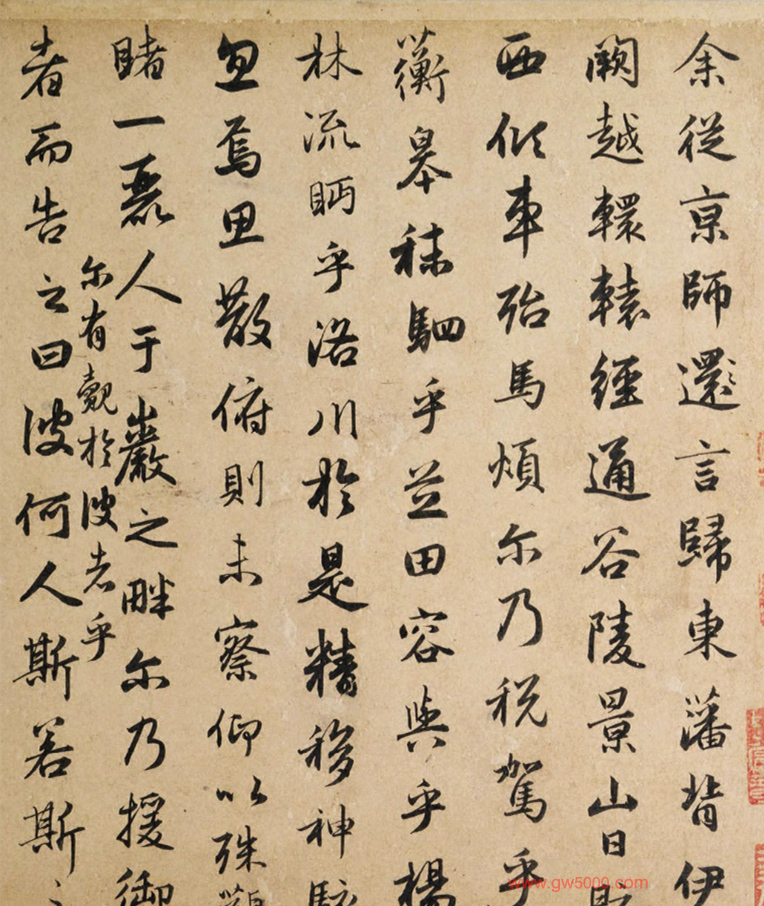 余從京師還言歸東藩背伊
闕越轘轅經通谷陵景山日
西傾車殆馬煩尔乃稅駕乎
蘅皋秣駟乎芝田容與乎楊
林流眄乎洛川於是精移神駭
忽焉思散俯則未察仰以殊觀
睹一麗人于巖之畔尔乃援御
尔有覿於彼者乎
者而告之曰彼何人斯若斯之
www.gw5000.com